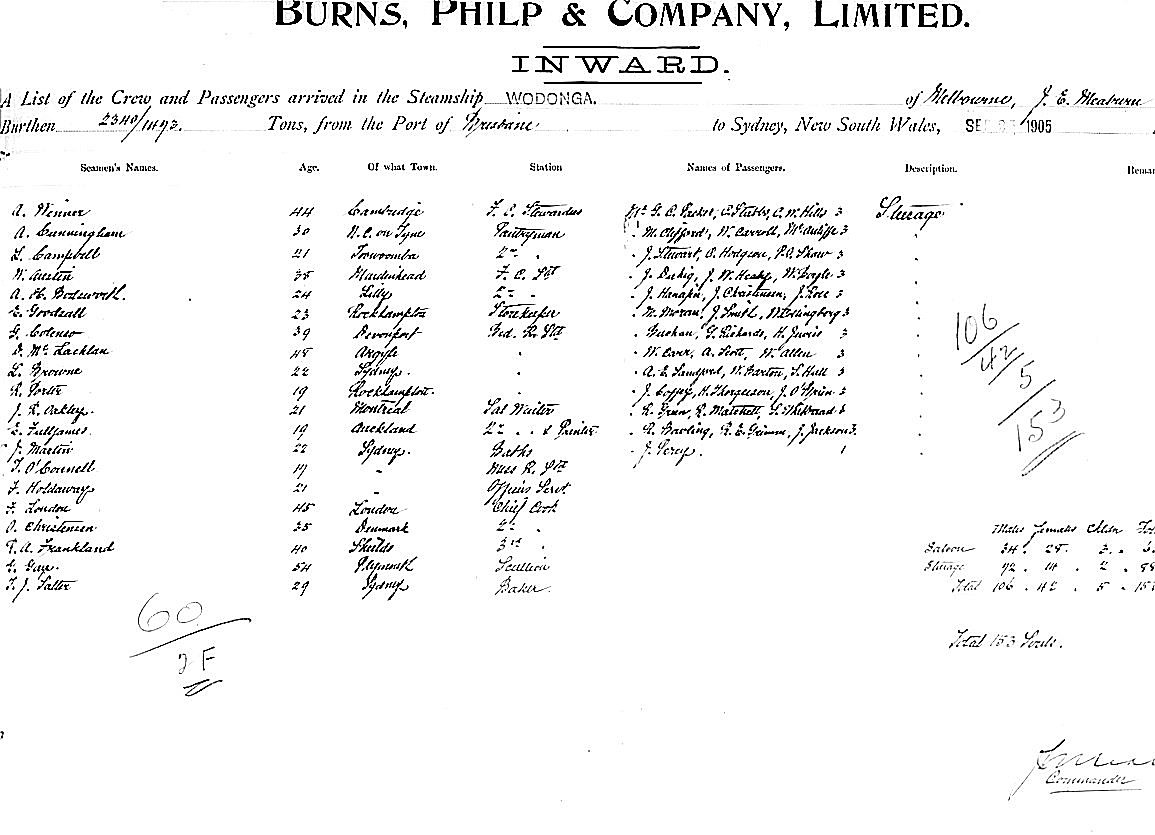 BURNS, PHILP & COMPANY, LIMITED.
INWARD.
A List of the Crew and Passengers arrived in the Steamship WODONGA. of Melbourne, J. E. Meaburn
Burthen 2340/1493. Tons, from the Port of Brisbane to Sydney, New South Wales, SE 1905
Seamen's Names. Age. Of what Town. Station Names of Passengers. Description. Remar
A. Wenner 44 Cambridge F. C. Stewardess Mr G. C. C. Stubbs, C. W. Hills 3 Steerage
A. Cunningham 30 N.C. on Tyne Pantryman M. Clifford, W. Carroll, McAuliffe 3
L. Campbell 21 Toowoomba 2nd " J. Stewart, O. Hodgson, P.O. Shaw 3
W. Austin 35 Maidenhead F. C. Std J. W. Healy, W. Boyle 3
A. H. Bodsworth. 24 Lilly 2nd " J. Hanafin, J. Christensen, J. Rose 3
E. Goodsall 23 Rockhampton Storekeeper M. Moran, J. Smith, 3
G. Colenso 39 Devonport Bed. R. Std Buchan, G. Rickards, H. Jarvis 3
D. McLachlan 48 Argyle " W. Cver, A. Scott, W. Allen 3
L. Browne 22 Sydney. " A. E. W. Barton, S. Hall 3
R. Porter 19 Rockhampton. " J. Coffey, H. Thorgeson, J. O'Brien 3
J. R. Oakley. 21 Montreal Sal Waiter R. Green, R. Matchell, 3
E. Fulljames. 19 Auckland 2nd " " & Printer R. Bowling, R. E. Grimm, J. Jackson 3.
J. Martin 22 Sydney. Baths J. Percy. 1
T. O'Connell 19 " Mess R. Std
F. Holdaway 21 " Officers Servt
F. London 45 London Chief Cook
O. Christensen 35 Denmark 2nd "
T. A. Frankland 40 Shields 3rd "
G. Gaye. 54 Plymouth Scullion
T. J. Salter 29 Sydney Baker.
106
42
5
153
Males Females Chldn Tot
Saloon 34 . 28 . 3 .
Steerage 72 . 14 . 2 . 88
Total 106 . 42 . 5 . 15
Total 153 Souls.
60
2 F
Commander